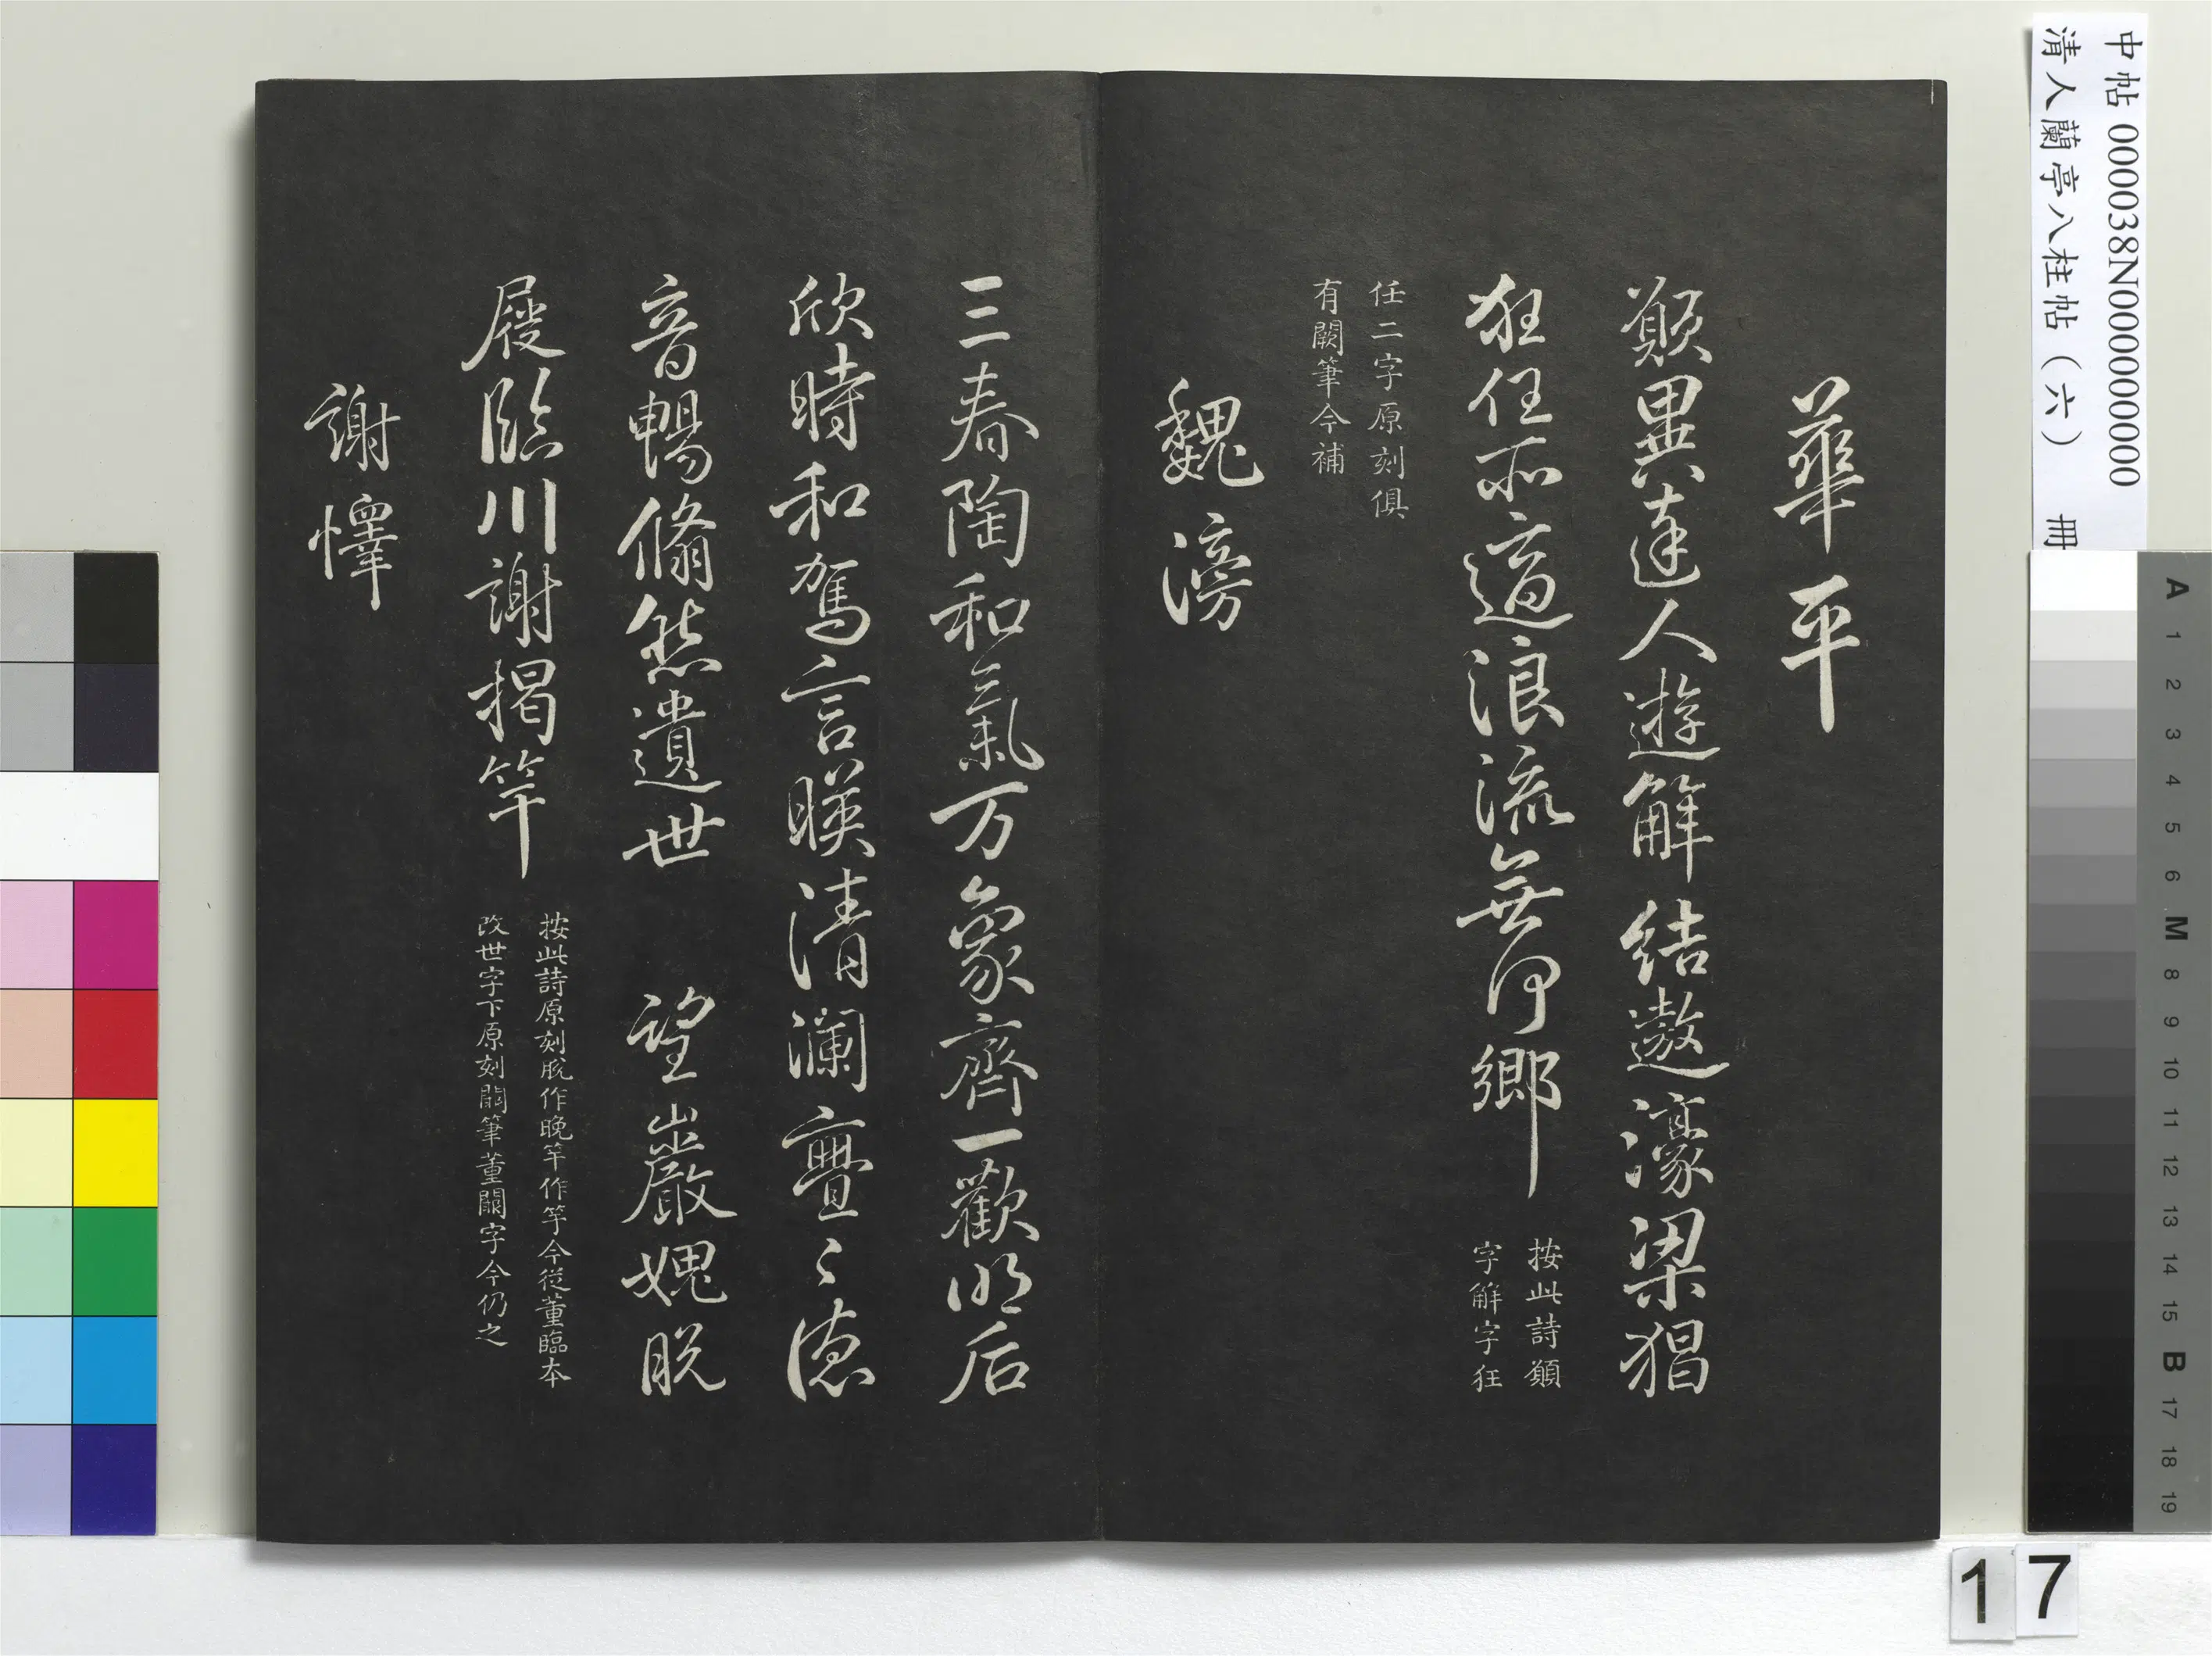 華平
願與達人遊解結遨濠梁猖
狂任所適浪流無何鄉
按此詩願
字解字狂
任二字原刻俱
有闕筆今補
魏滂
三春陶和氣万象齊一歡明后
欣時和駕言暎清瀾亹〻德
音暢脩然遺世 望巖媿脱
屣臨川謝揭竿
按此詩原刻脱作晚竿作竽今從董臨本
改世字下原刻闕筆董闕字今仍之
謝懌
中帖 000038N000000000
清人蘭亭八柱帖（六） 冊
A 1 2 3 4 5 6 M 8 9 10 11 12 13 14 15 B 17 18 19
17